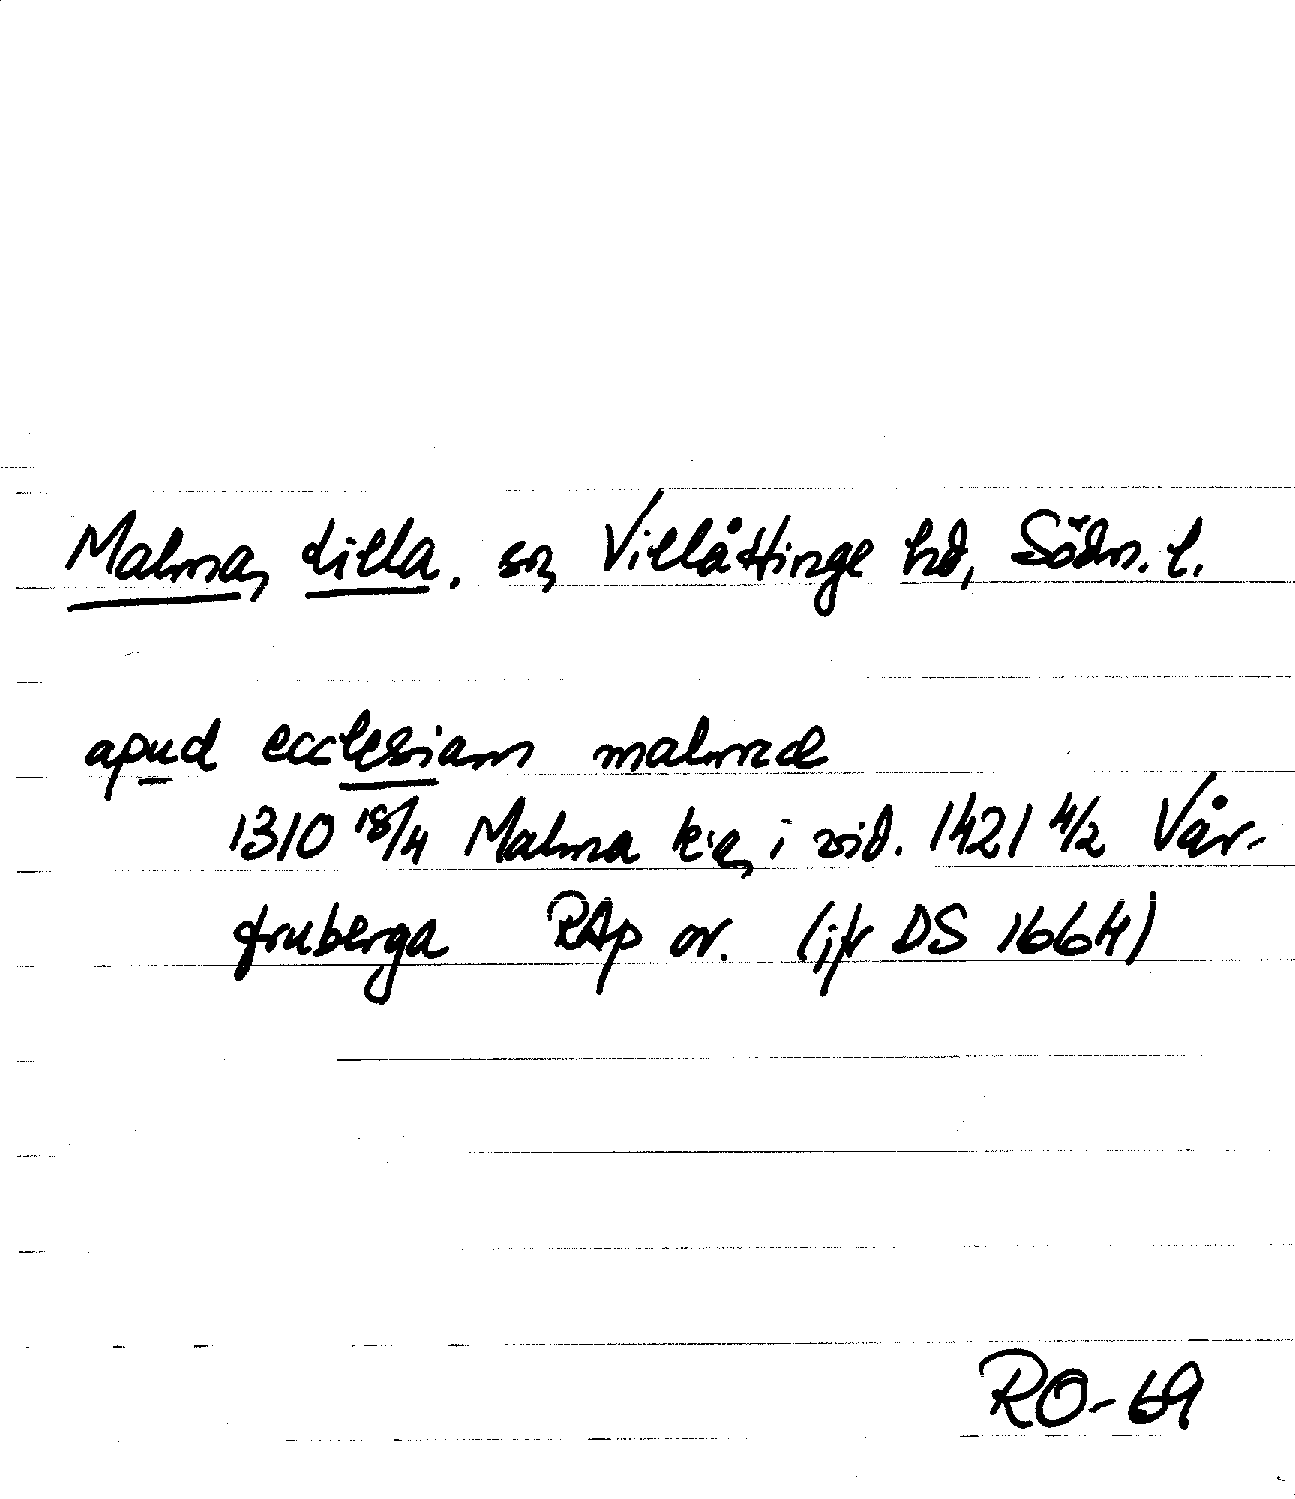 Malma, Lilla. sn, Villåttinge hd, Södm. l.
apud ecclesiam malmæ
1310 18/4 Malma k:a, i vid. 1421 4/2 Vår-
fruberga RAp or. (jfr DS 1664)
RO-69